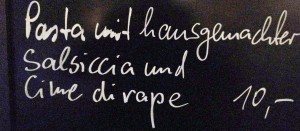 Pasta mit hausgemachter
Salsiccia und
Cime di rape 10,-